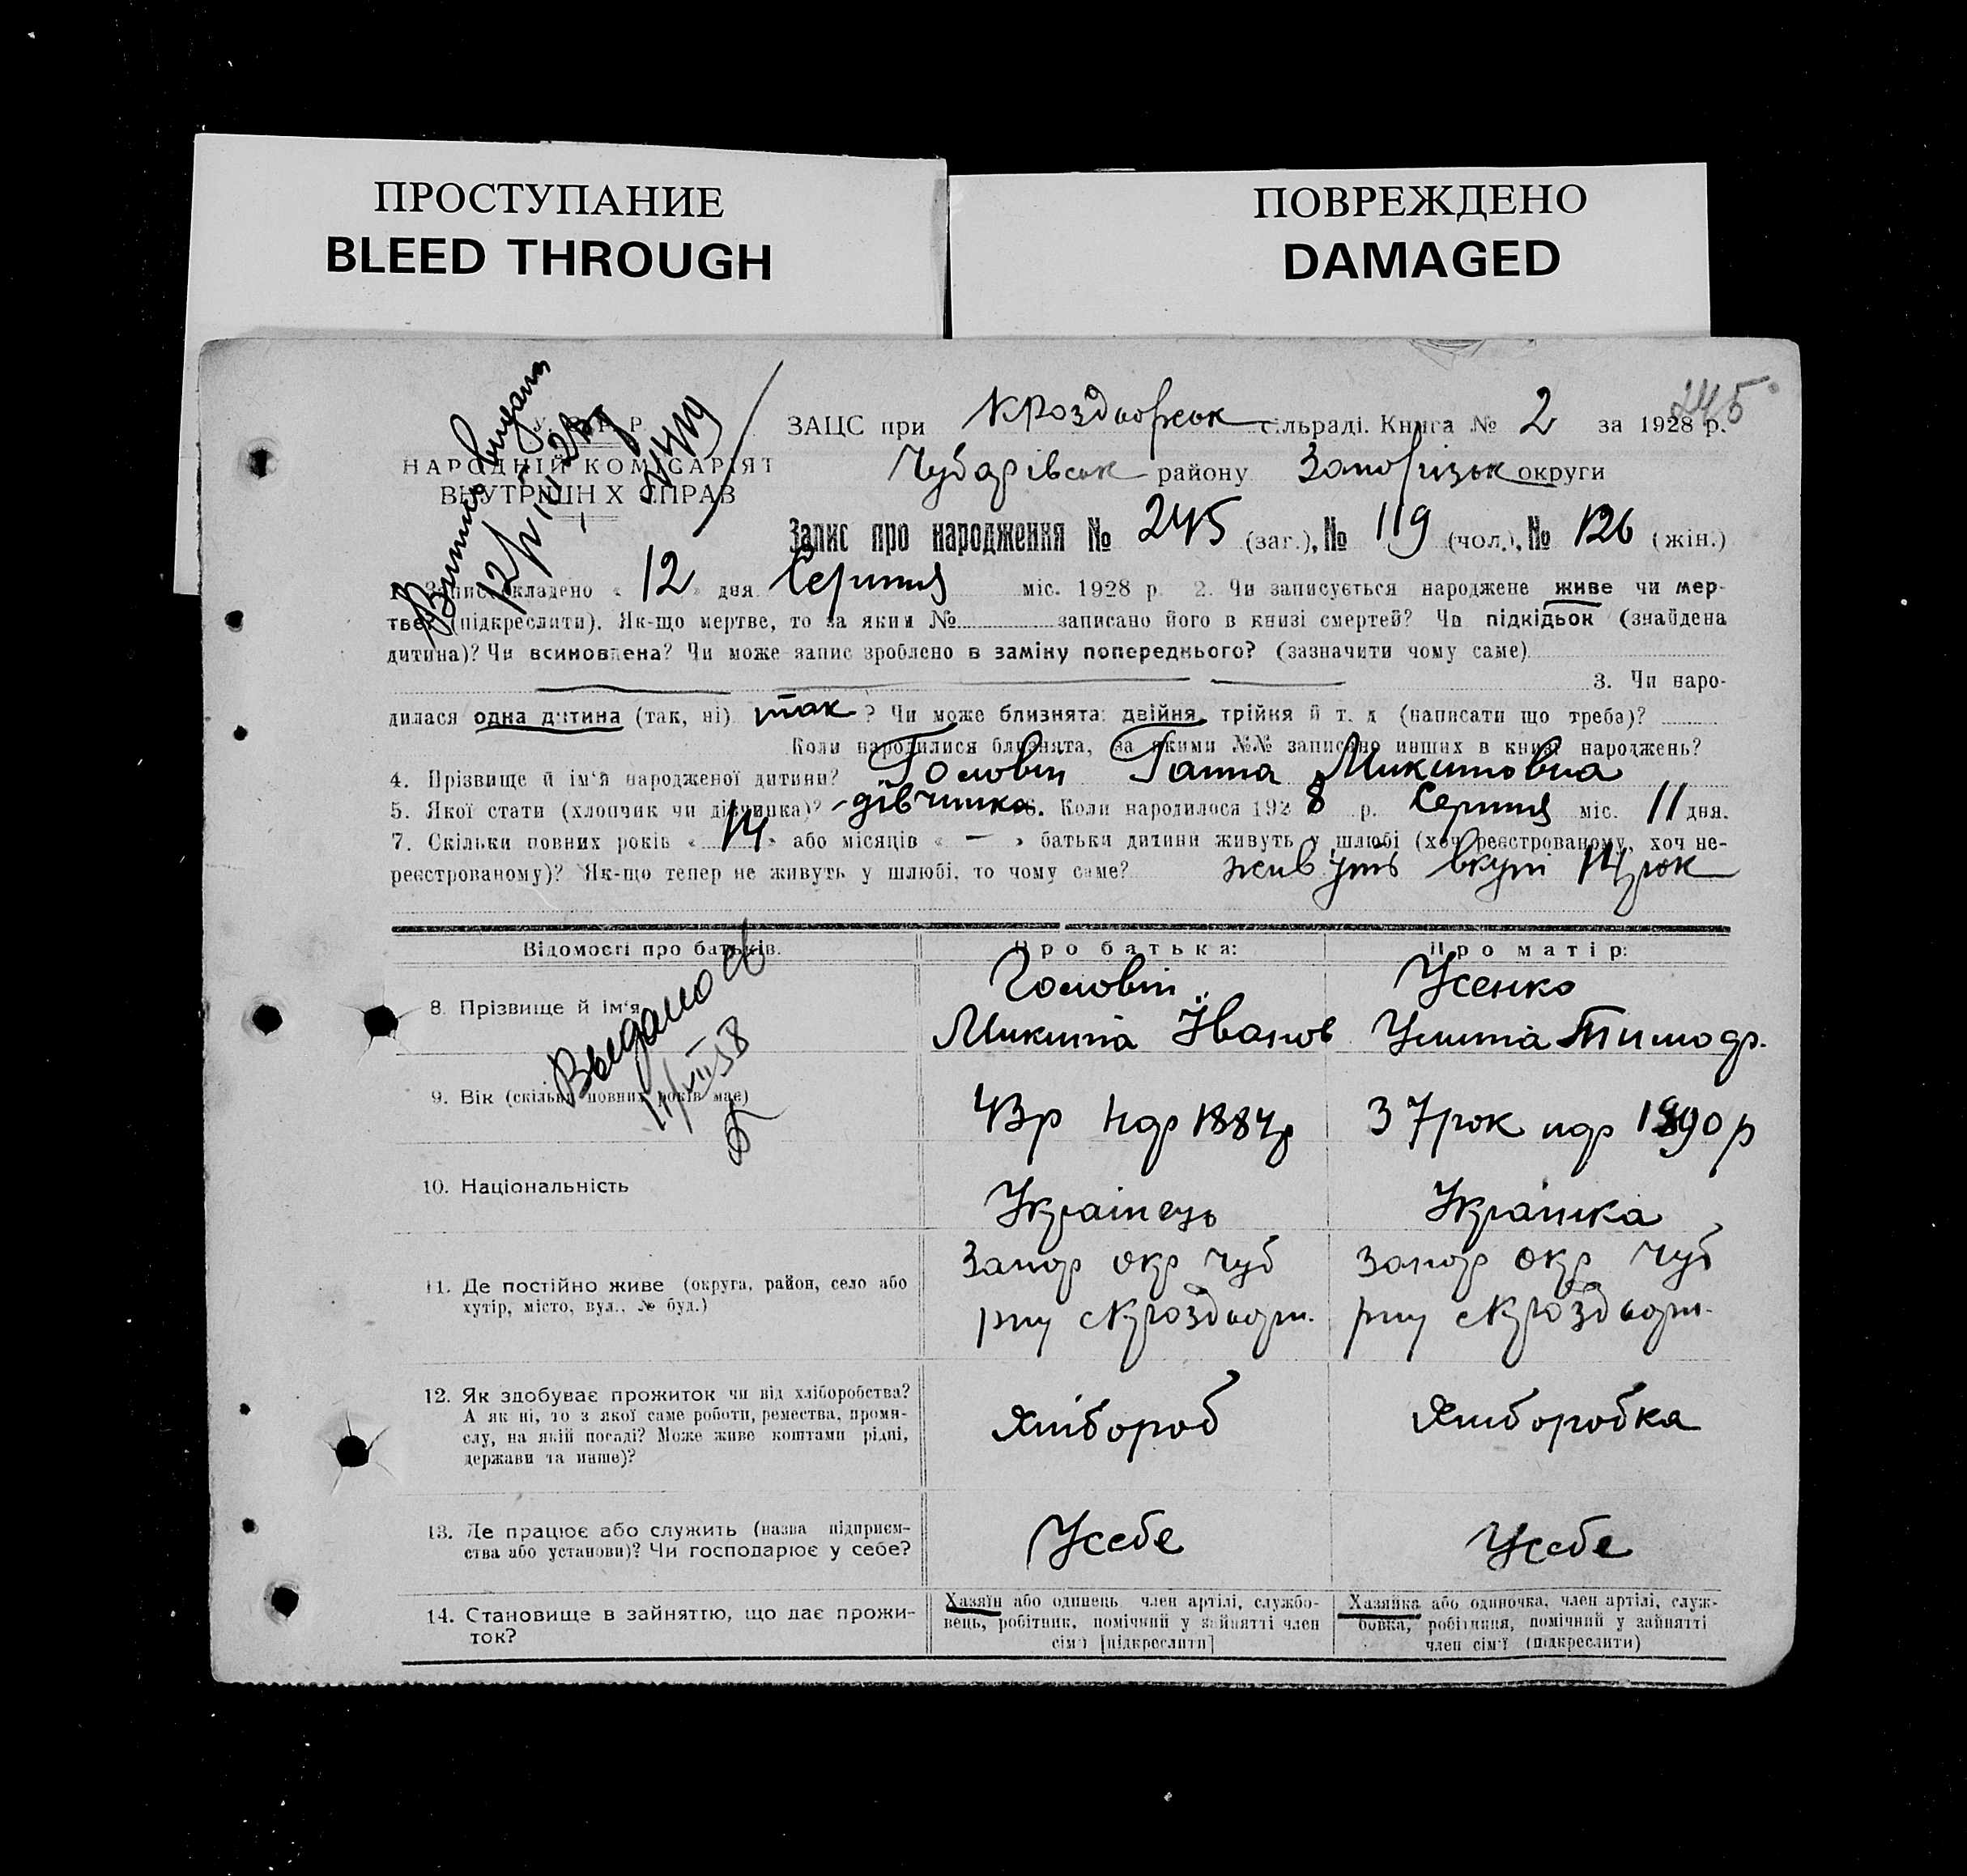 ПРОСТУПАНИЕ
BLEED THROUGH
ПОВРЕЖДЕНО
DAMAGED
245
НАРОДНІЙ КОМІСАРІЯТ
ВНУТРІШНІХ СПРАВ
ЗАЦС при Кроздворськ сільраді. Книга № 2 за 1928 р.
Чубарівськ району Запорізьк округи
Запис про народження № 245 (заг.), № 119 (чол.), № 126 (жін.)
1. Запис складено „ 12 " дня Серпня міс. 1928 р. 2. Чи записується народжене живе чи мер-
тве? (підкреслити). Як-що мертве, то за яким № записано його в книзі смертей? Чи підкідьок (знайдена
дитина)? Чи всиновлена? Чи може запис зроблено в заміну попереднього? (зазначити чому саме)
3. Чи наро-
дилася одна дитина (так, ні) так ? Чи може близнята: двійня, трійня й т. д. (написати що треба)?
Коли народилися близнята, за якими №№ записано инших в книзі народжень?
4. Прізвище й ім'я народженої дитини? Головін Ганна Микитовна
5. Якої стати (хлопчик чи дівчинка)? дівчинка 6. Коли народилося 1928 р. Серпня міс. 11 дня.
7. Скільки повних років „ 14 " або місяців „ — " батьки дитини живуть у шлюбі (хоч реєстрованому, хоч не-
реєстрованому)? Як-що тепер не живуть у шлюбі, то чому саме? живуть вкупі 14 рок
Відомості про батьків. Про батька: Про матір:
8. Прізвище й ім'я Головін Усенко
Микита Іванов Тимофр.
Выдано св
11/VII 38
9. Вік (скільки повних років має) 43р ндр 1884р 37рок ндр 1890р
10. Національність Українець Українка
11. Де постійно живе (округа, район, село або
хутір, місто, вул., № буд.)
Запор окр Чуб Запор окр Чуб
рну с Кроздворк. рну с Кроздворк.
12. Як здобуває прожиток чи від хліборобства?
А як ні, то з якої саме роботи, ремества, проми-
слу, на якій посаді? Може живе коштами рідні,
держави та инше)?
Хлібороб Хліборобка
13. Де працює або служить (назва підприєм-
ства або установи)? Чи господарює у себе?
Усебе Усебе
14. Становище в зайняттю, що дає прожи-
ток?
Хазяїн або одинець, член артілі, службо-
вець, робітник, помічний у зайнятті член
сім'ї [підкреслити]
Хазяйка або одиночка, член артілі, служ-
бовка, робітниця, помічний у зайнятті
член сім'ї (підкреслити)